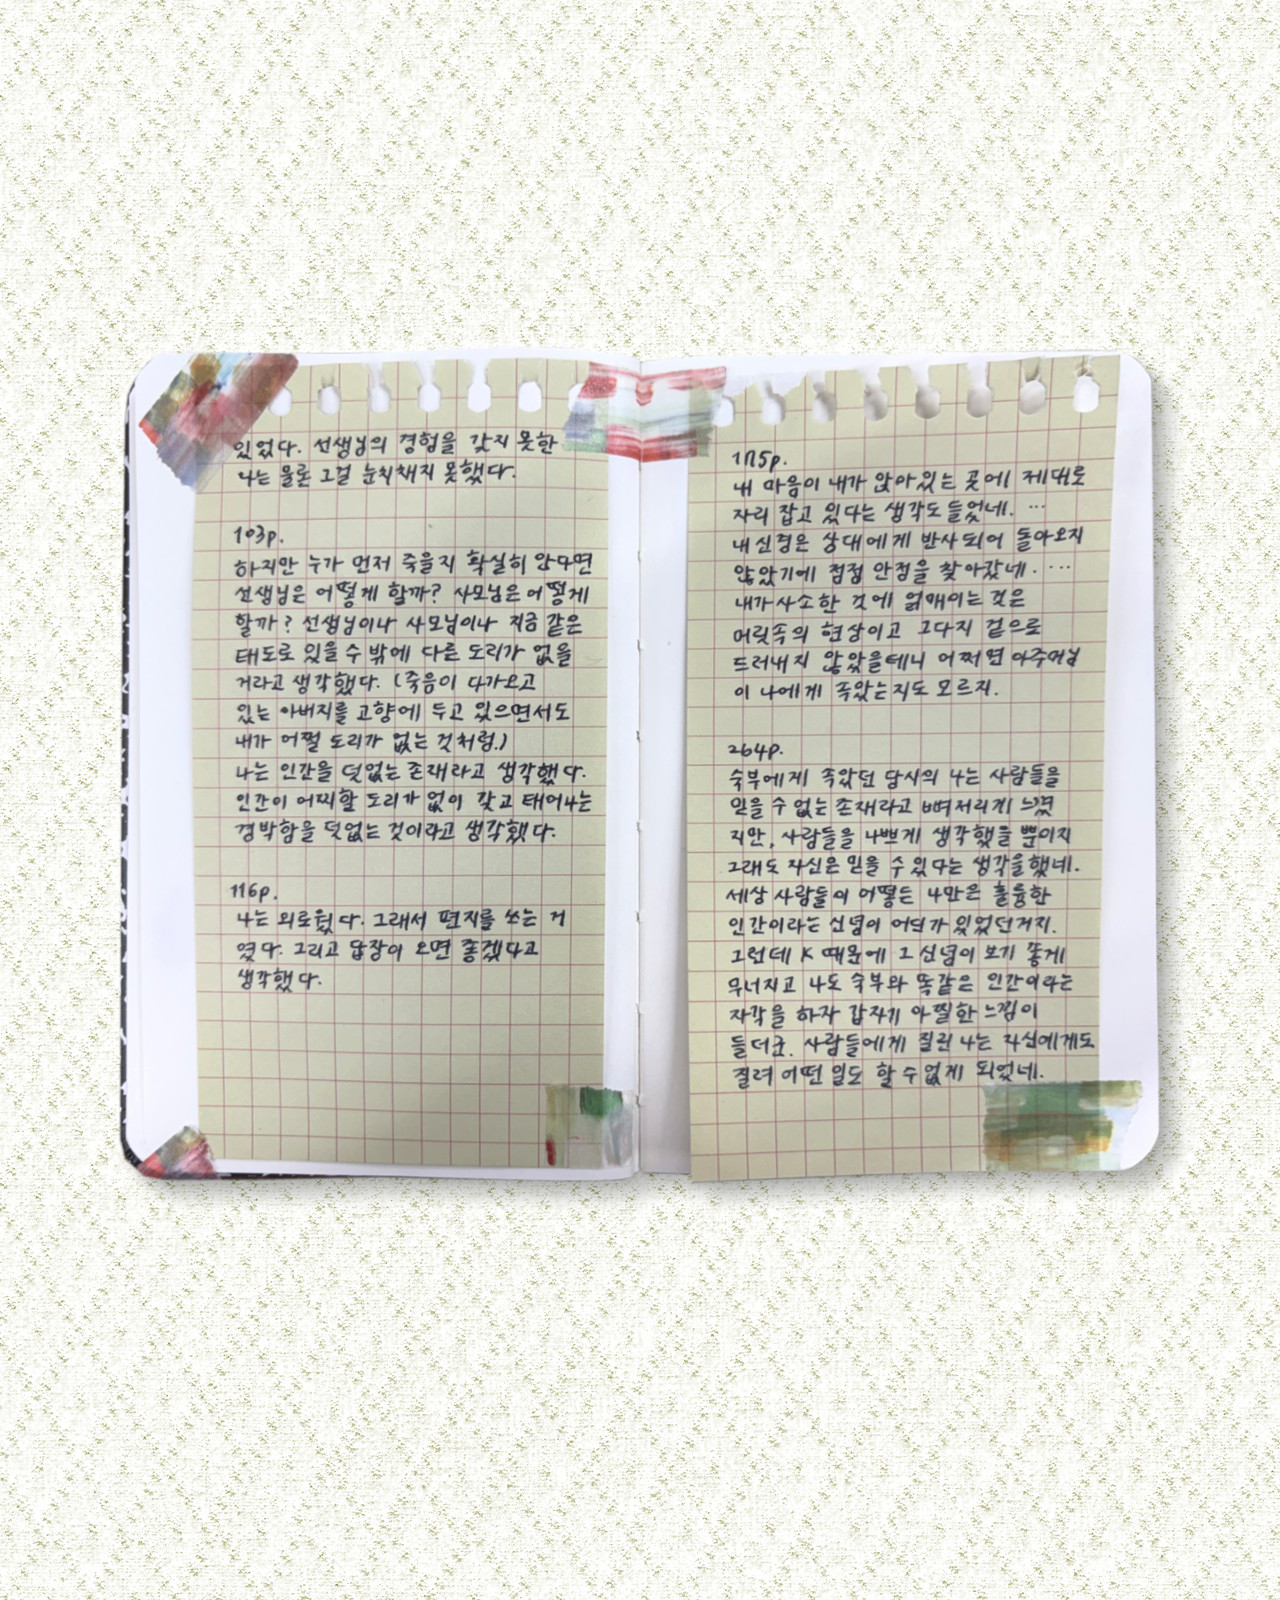 있었다. 선생님의 경험을 갖지 못한
나는 물론 그걸 눈치채지 못했다.
103p.
하지만 누가 먼저 죽을지 확실히 안다면
선생님은 어떻게 할까? 사모님은 어떻게
할까? 선생님이나 사모님이나 지금 같은
태도로 있을 수 밖에 다른 도리가 없을
거라고 생각했다. (죽음이 다가오고
있는 아버지를 고향에 두고 있으면서도
내가 어쩔 도리가 없는 것처럼.)
나는 인간을 덧없는 존재라고 생각했다.
인간이 어찌할 도리가 없이 갖고 태어나는
경박함을 덧없는 것이라고 생각했다.
116p.
나는 외로웠다. 그래서 편지를 쓰는 거
였다. 그리고 답장이 오면 좋겠다고
생각했다.
175p.
내 마음이 내가 앉아있는 곳에 제대로
자리 잡고 있다는 생각도 들었네. ...
내 신경은 상대에게 반사되어 돌아오지
않았기에 점점 안정을 찾아갔네. ...
내가 사소한 것에 얽매이는 것은
머릿속의 현상이고 그다지 겉으로
드러내지 않았을테니 어쩌면 아주머님
이 나에게 속았는지도 모르지.
264p.
숙부에게 속았던 당시의 나는 사람들을
믿을 수 없는 존재라고 뼈저리게 느꼈
지만, 사람들을 나쁘게 생각했을 뿐이지
그래도 자신은 믿을 수 있다는 생각을 했네.
세상 사람들이 어떻든 나만은 훌륭한
인간이라는 신념이 어딘가 있었던거지.
그런데 K 때문에 그 신념이 보기 좋게
무너지고 나도 숙부와 똑같은 인간이라는
자각을 하자 갑자기 아찔한 느낌이
들더군. 사람들에게 질린 나는 자신에게도
질려 어떤 일도 할 수 없게 되었네.